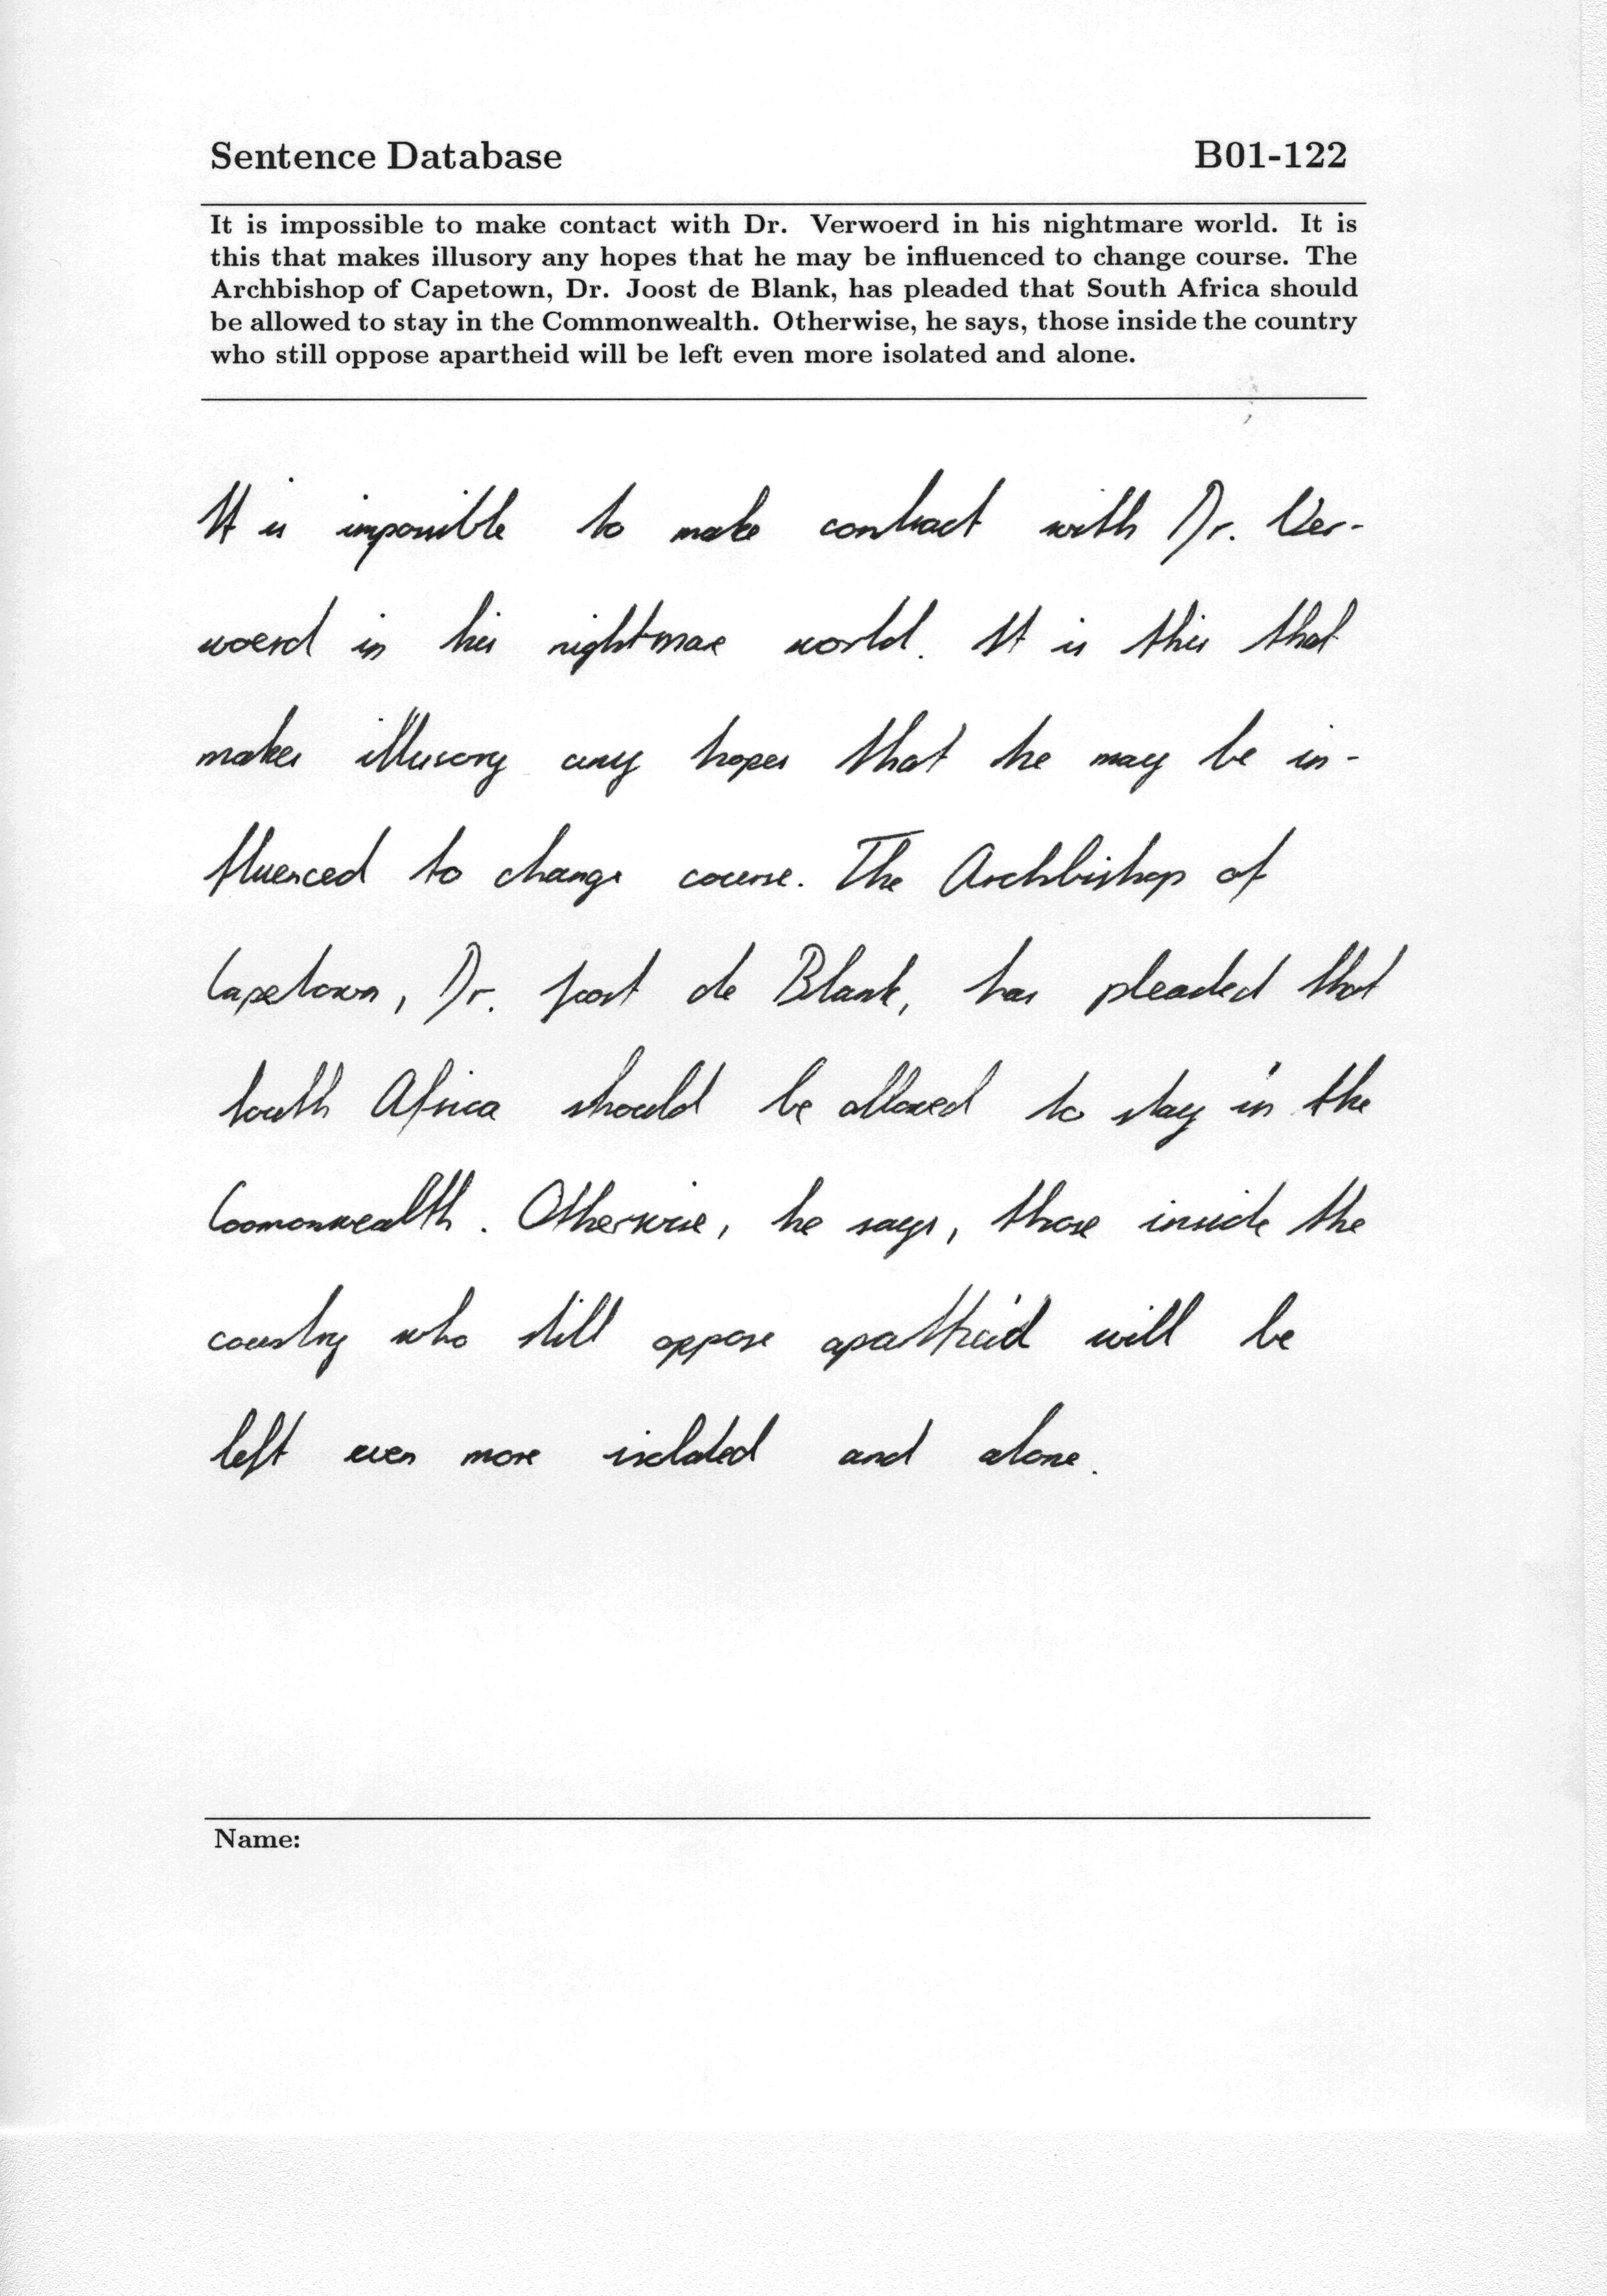 Sentence Database B01-122
It is impossible to make contact with Dr. Verwoerd in his nightmare world. It is
this that makes illusory any hopes that he may be influenced to change course. The
Archbishop of Capetown, Dr. Joost de Blank, has pleaded that South Africa should
be allowed to stay in the Commonwealth. Otherwise, he says, those inside the country
who still oppose apartheid will be left even more isolated and alone.
It is impossible to make contract with Dr. Ver-
woerd in his nightmare world. It is this that
makes illusory any hopes that he may be in-
fluenced to change course. The Archbishop of
Capetown, Dr. Joost de Blank, has pleaded that
South Africa should be allowed to stay in the
Coomonwealth. Otherwise, he says, those inside the
country who still oppose apattheid will be
left even more isolated and alone.
Name: